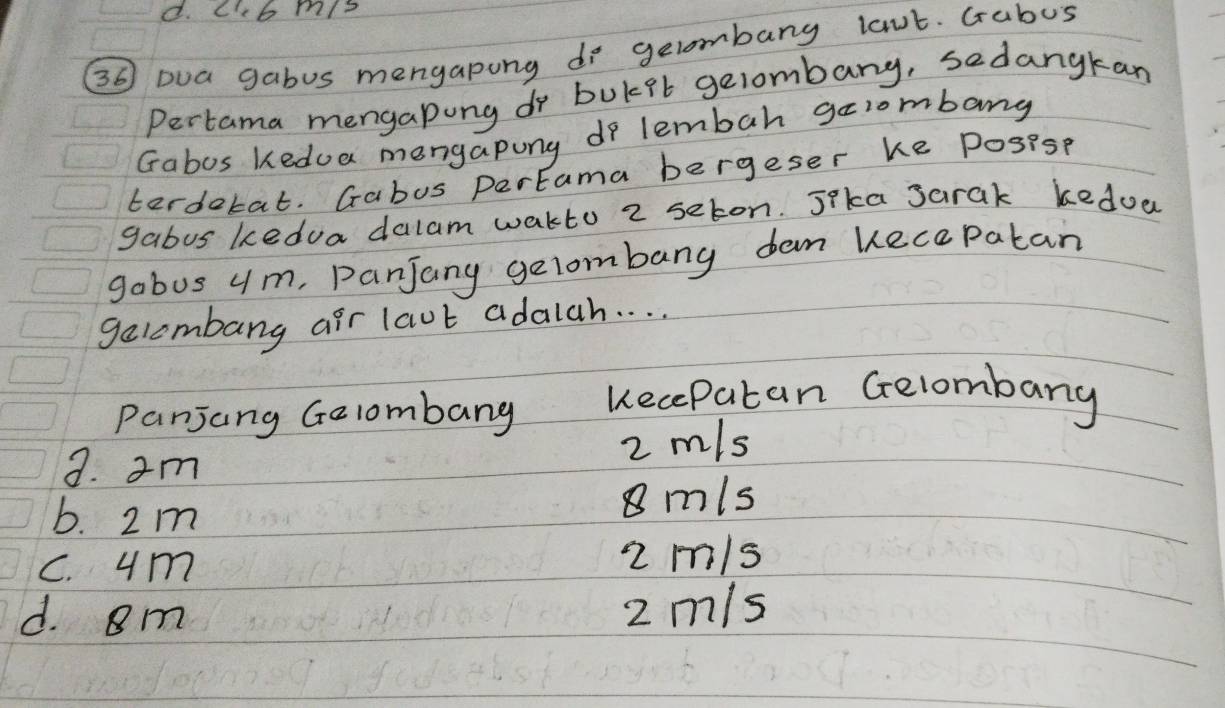 d. 21,6 m/s
36 Dua gabus mengapung di gelombang laut. Gabus
Pertama mengapung di bukit gelombang, sedangkan
Gabus Kedua mengapung di lembah gelombang
terdekat. Gabus Pertama bergeser ke Posisi
gabus kedua dalam waktu 2 sekon. Jika Jarak kedua
gabus 4 m, Panjang gelombang dan Kecepatan
gelombang air laut adalah....
Panjang Gelombang Kecepatan Gelombang
a. 2m 2 m/s
b. 2 m 8 m/s
c. 4 m 2 m/s
d. 8 m 2 m/s